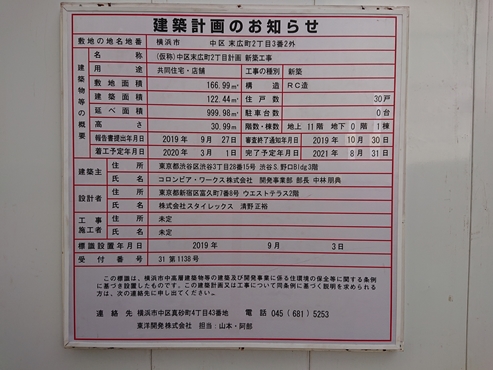 建築計画のお知らせ
敷地の地名地番 横浜市 中区 末広町2丁目3番2外
建築物等の概要
名称 (仮称)中区末広町2丁目計画 新築工事
用途 共同住宅・店舗 工事の種別 新築
敷地面積 166.99㎡ 構造 RC造
建築面積 122.44㎡ 住戸数 30戸
延べ面積 999.98㎡ 駐車台数 0台
高さ 30.99m 階数・棟数 地上 11階 地下 0階 1棟
報告書提出年月日 2019年 9月 27日 審査終了通知年月日 2019年 10月 30日
着工予定年月日 2020年 3月 1日 完了予定年月日 2021年 8月 31日
建築主 住所 東京都渋谷区渋谷3丁目28番15号 渋谷S.野口Bldg3階
氏名 コロンビア・ワークス株式会社 開発事業部 部長 中林朋典
設計者 住所 東京都新宿区富久町7番8号 ウエストテラス2階
氏名 株式会社スタイレックス 清野正裕
工事施工者 住所 未定
氏名 未定
標識設置年月日 2019年 9月 3日
受付番号 31 第1138号
この標識は、横浜市中高層建築物等の建築及び開発事業に係る住環境の保全等に関する条例
に基づき設置したものです。この建築計画又は工事について同条例に基づく説明を求められる
方は、次の連絡先に申し出てください。
連絡先 横浜市中区真砂町4丁目43番地 電話 045(681)5253
東洋開発株式会社 担当:山本・阿部